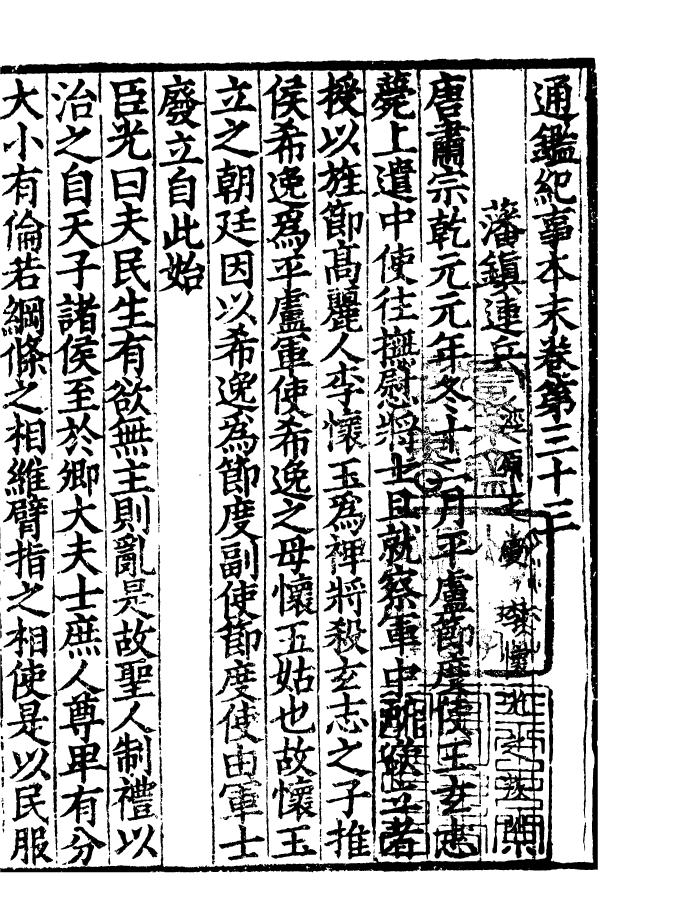 通鑑紀事本末卷第三十三
藩鎮連兵 涇原之變 李懷光之叛附
唐肅宗乾元元年冬十二月平盧節度使王玄志
薨上遣中使往撫慰將士且就察軍中所欲立者
授以旌節高麗人李懷玉為裨將殺玄志之子推
侯希逸為平盧軍使希逸之母懷玉姑也故懷玉
立之朝廷因以希逸為節度副使節度使由軍士
廢立自此始
臣光曰夫民生有欲無主則亂是故聖人制禮以
治之自天子諸侯至於卿大夫士庶人尊卑有分
大小有倫若綱條之相維臂指之相使是以民服